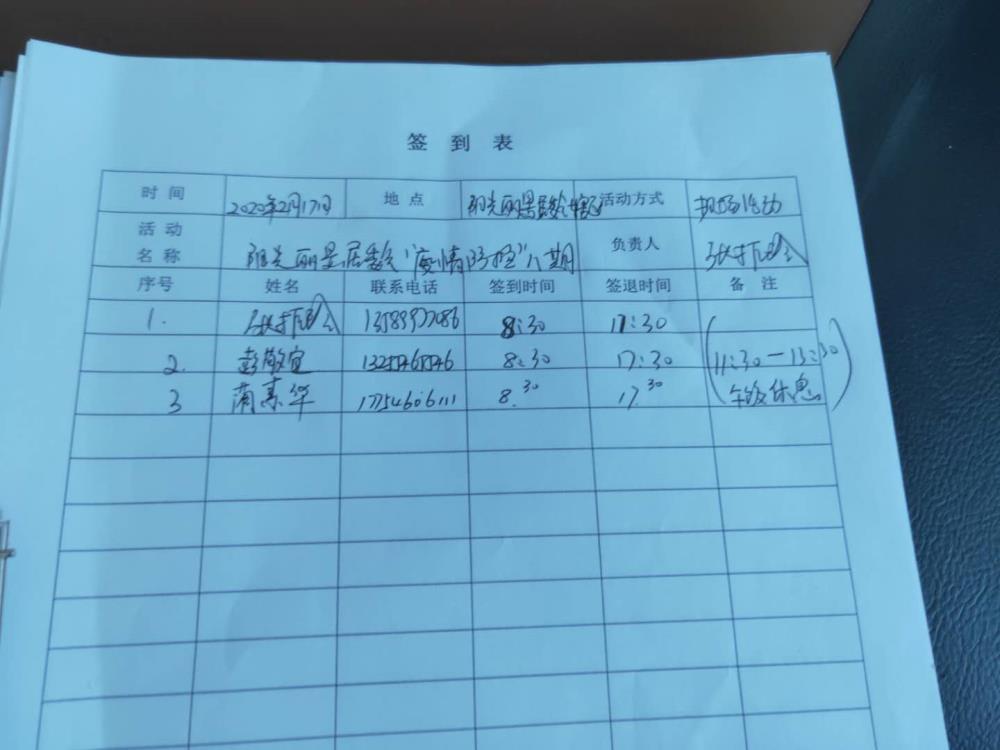 签到表
时间 2020年2月17日 地点 阳光丽景居委会辖区 活动方式 现场活动
活动名称 阳光丽景居委会“疫情防控”八期 负责人
序号 姓名 联系电话 签到时间 签退时间 备注
1. 8:30 17:30
2. 彭敬宜 8:30 17:30 (11:30—13:30
3 蒲素华 17754606111 8.30 17.30 午饭休息)